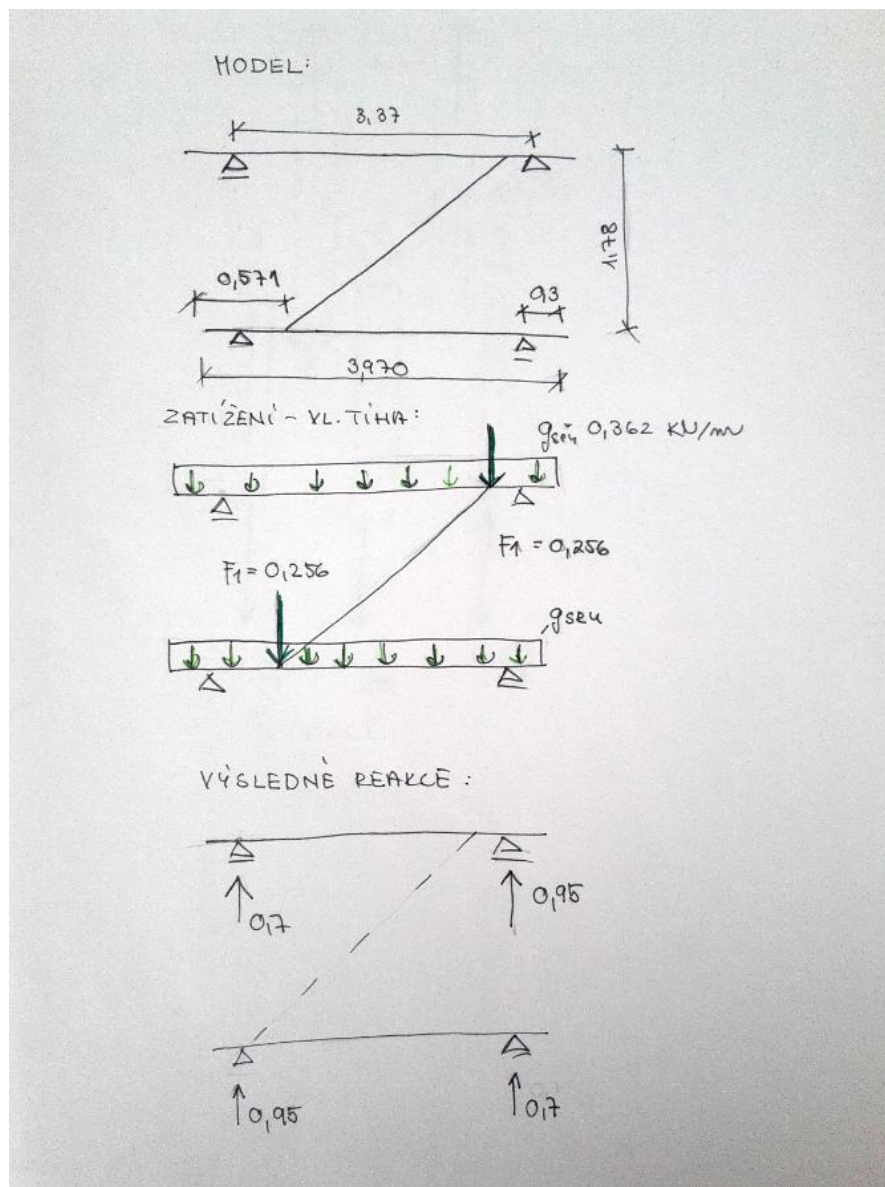 MODEL:
3,37
1,78
0,571
0,3
3,970
ZATÍŽENÍ - VL. TÍHA:
0,362 KN/m
F1 = 0,256
F1 = 0,256
VÝSLEDNÉ REAKCE:
0,7
0,95
0,95
0,7